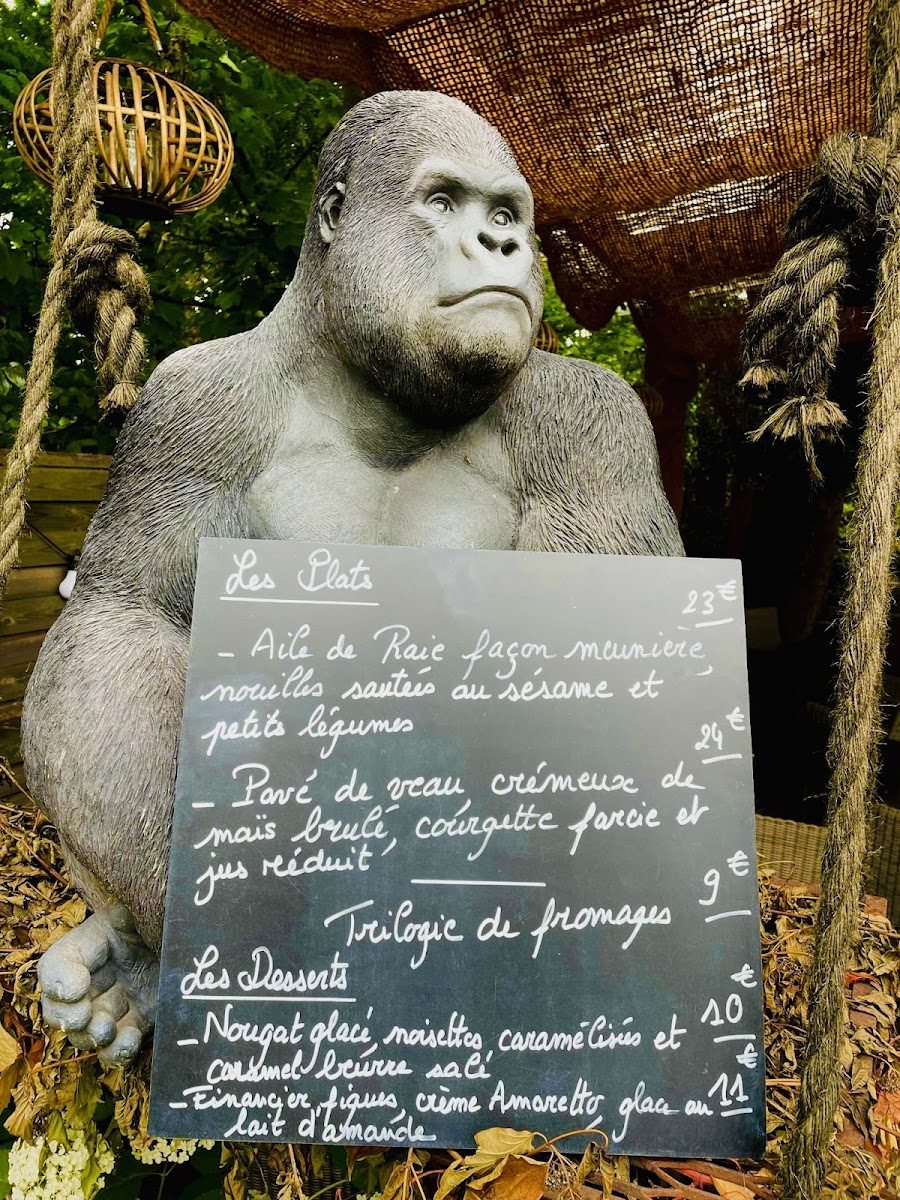 Les Plats
23€
- Aile de Raie façon meunière,
nouilles sautées au sésame et
petits légumes
24€
- Pavé de veau, crémeux de
maïs brulé, courgette farcie et
jus réduit
9€
Trilogie de fromages
Les Desserts
10€
- Nougat glacé, noisettes caramélisées et
caramel beurre salé
- Financier figues, crème Amaretto, glace au 11€
lait d'amande